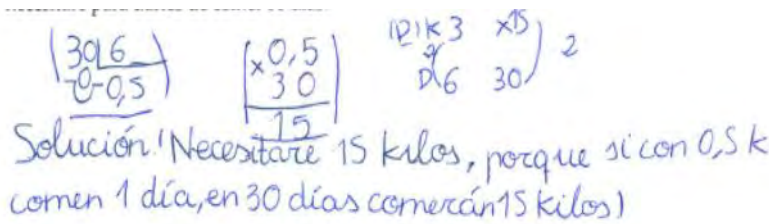 30 6
0 0,5
x 0,5
30
15
K 3 x 15
D 6 30
2
Solución: (Necesitaré 15 kilos, porque si con 0,5 k
comen 1 día, en 30 días comerán 15 kilos)